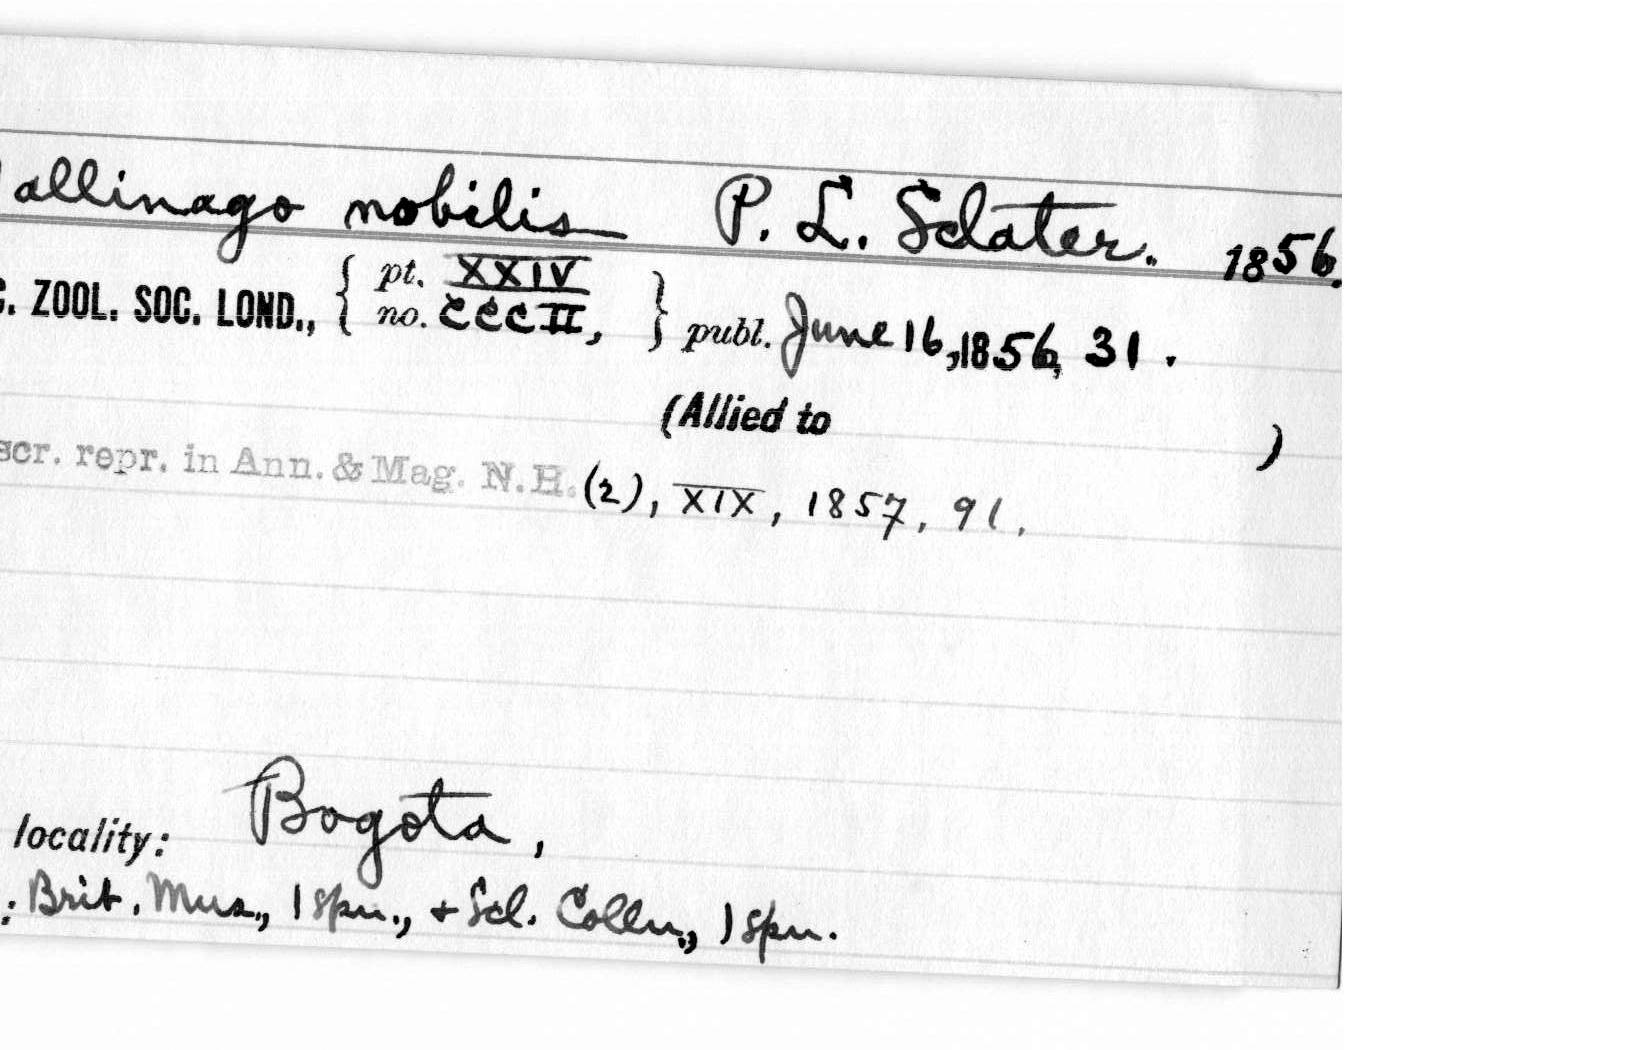 allinago nobilis P. L. Sclater. 1856.
. ZOOL. SOC. LOND., { pt. XXIV no. CCCII, } publ. June 16, 1856, 31.
(Allied to )
scr. repr. in Ann. & Mag. N.H. (2), XIX, 1857, 91.
locality: Bogota,
: Brit. Mus., 1 spn., + Scl. Colln., 1 spn.